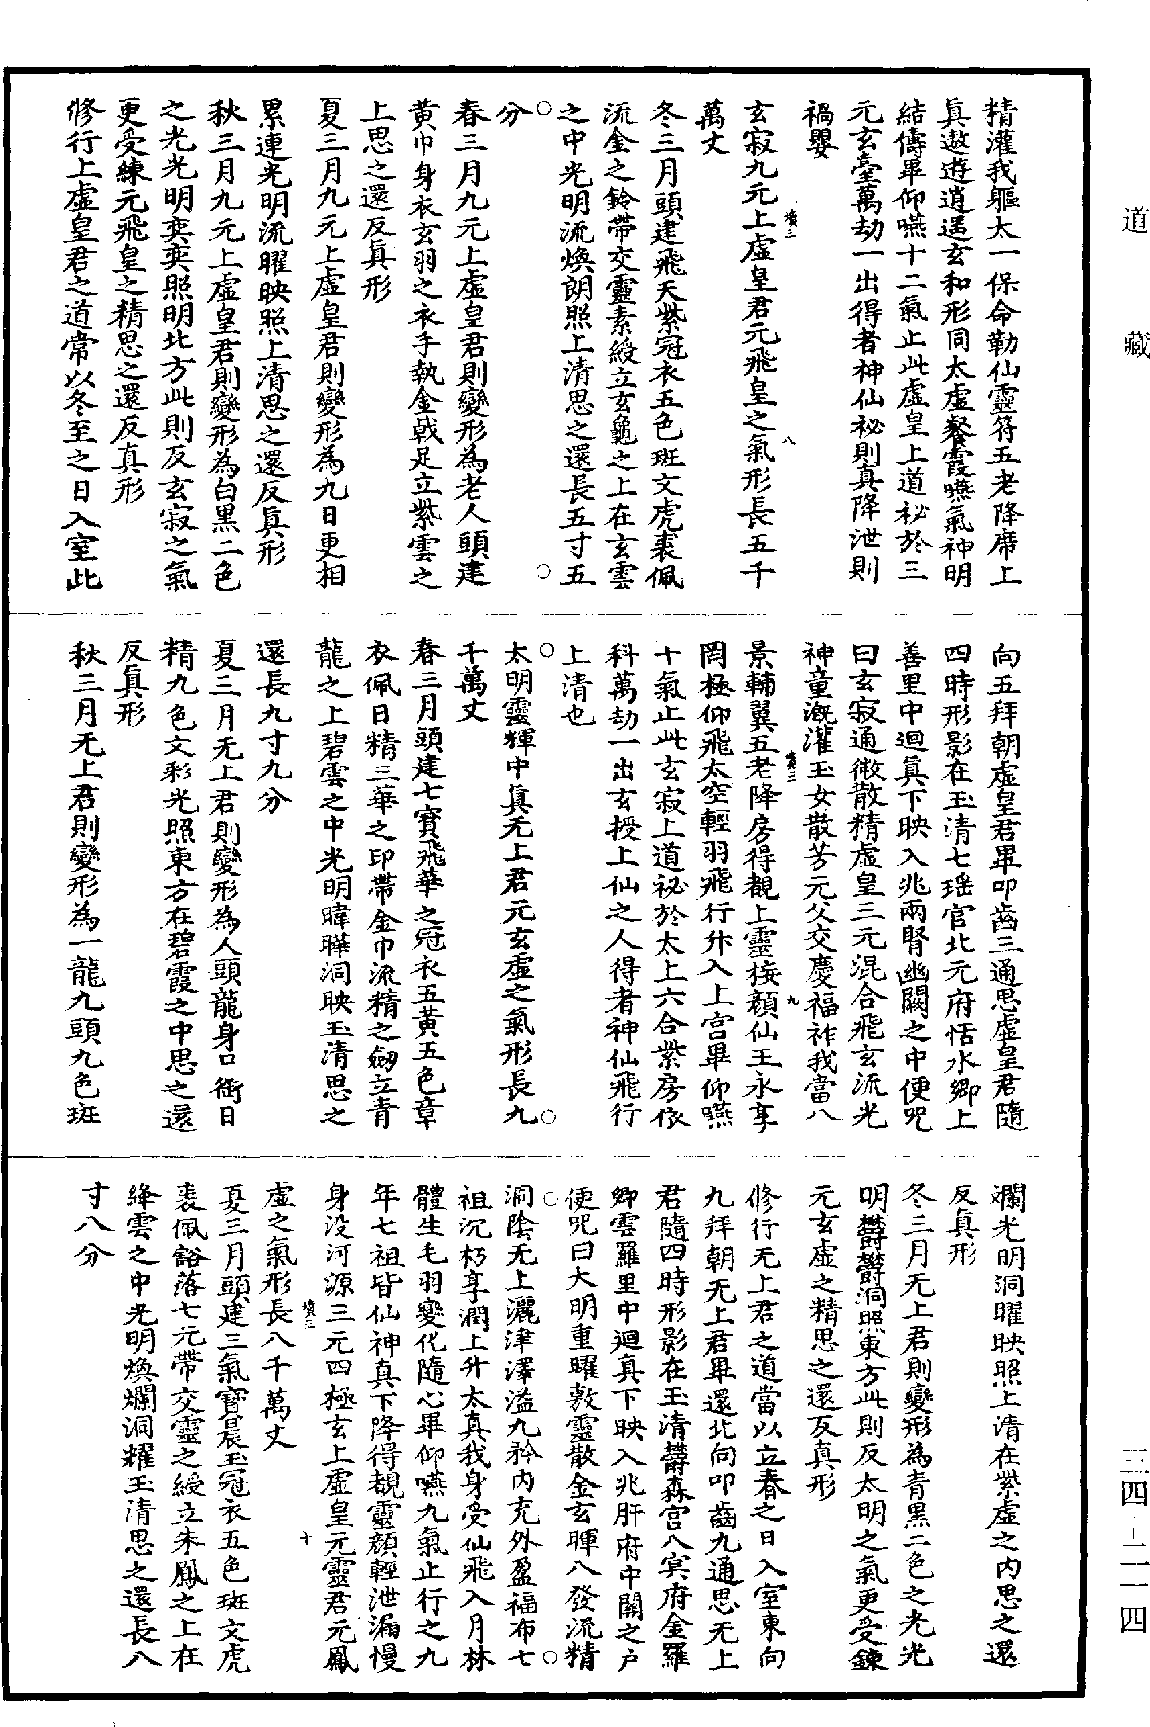 道藏
精灌我軀太一保命勒仙靈符五老降席上
真遨遊逍遥玄和形同太虛餐霞嚥氣神明
結儔畢仰嚥十二氣止此虛皇上道祕於三
元玄臺萬劫一出得者神仙祕則真降泄則
禍嬰
玄寂九元上虛皇君元飛皇之氣形長五千
萬丈
冬三月頭建飛天紫冠衣五色斑文虎裘佩
流金之鈴帶交靈素綬立玄龜之上在玄雲
之中光明流煥朗照上清思之還長五寸五
分
春三月九元上虛皇君則變形為老人頭建
黃巾身衣玄羽之衣手執金戟足立紫雲之
上思之還反真形
夏三月九元上虛皇君則變形為九日更相
累連光明流曜映照上清思之還反真形
秋三月九元上虛皇君則變形為白黑二色
之光光明奕奕照明北方此則反玄寂之氣
更受練元飛皇之精思之還反真形
修行上虛皇君之道常以冬至之日入室北
向五拜朝虛皇君畢叩齒三通思虛皇君隨
四時形影在玉清七瑶宮北元府恬水鄉上
善里中迴真下映入兆兩腎幽闕之中便咒
曰玄寂通微散精虛皇三元混合飛玄流光
神童溉灌玉女散芳元父交慶福祚我當八
景輔翼五老降房得覩上靈接顏仙王永享
罔極仰飛太空輕羽飛行升入上宮畢仰嚥
十氣止此玄寂上道祕於太上六合紫房依
科萬劫一出玄授上仙之人得者神仙飛行
上清也
太明靈輝中真无上君元玄虛之氣形長九
千萬丈
春三月頭建七寶飛華之冠衣五黃五色章
衣佩日精三華之印帶金巾流精之劒立青
龍之上碧雲之中光明暐曄洞映玉清思之
還長九寸九分
夏三月无上君則變形為人頭龍身口銜日
精九色文彩光照東方在碧霞之中思之還
反真形
秋三月无上君則變形為一龍九頭九色斑
斕光明洞曜映照上清在紫虛之内思之還
反真形
冬三月无上君則變形為青黑二色之光光
明欝欝洞照東方此則反太明之氣更受鍊
元玄虛之精思之還反真形
修行无上君之道當以立春之日入室東向
九拜朝无上君畢還北向叩齒九通思无上
君隨四時形影在玉清欝森宮八冥府金羅
鄉雲羅里中迴真下映入兆肝府中開之户
便咒曰大明重曜敷靈散金玄暉八發流精
洞陰无上灑津澤溢九衿内充外盈福布七
祖沉朽享潤上升太真我身受仙飛入月林
體生毛羽變化隨心畢仰嚥九氣止行之九
年七祖皆仙神真下降得覩靈顏輕泄漏慢
身没河源三元四極玄上虛皇元靈君元鳳
虛之氣形長八千萬丈
夏三月頭建三氣寶晨玉冠衣五色斑文虎
裘佩豁落七元帶交靈之綬立朱鳳之上在
絳雲之中光明煥斕洞耀玉清思之還長八
寸八分
三四-二一四